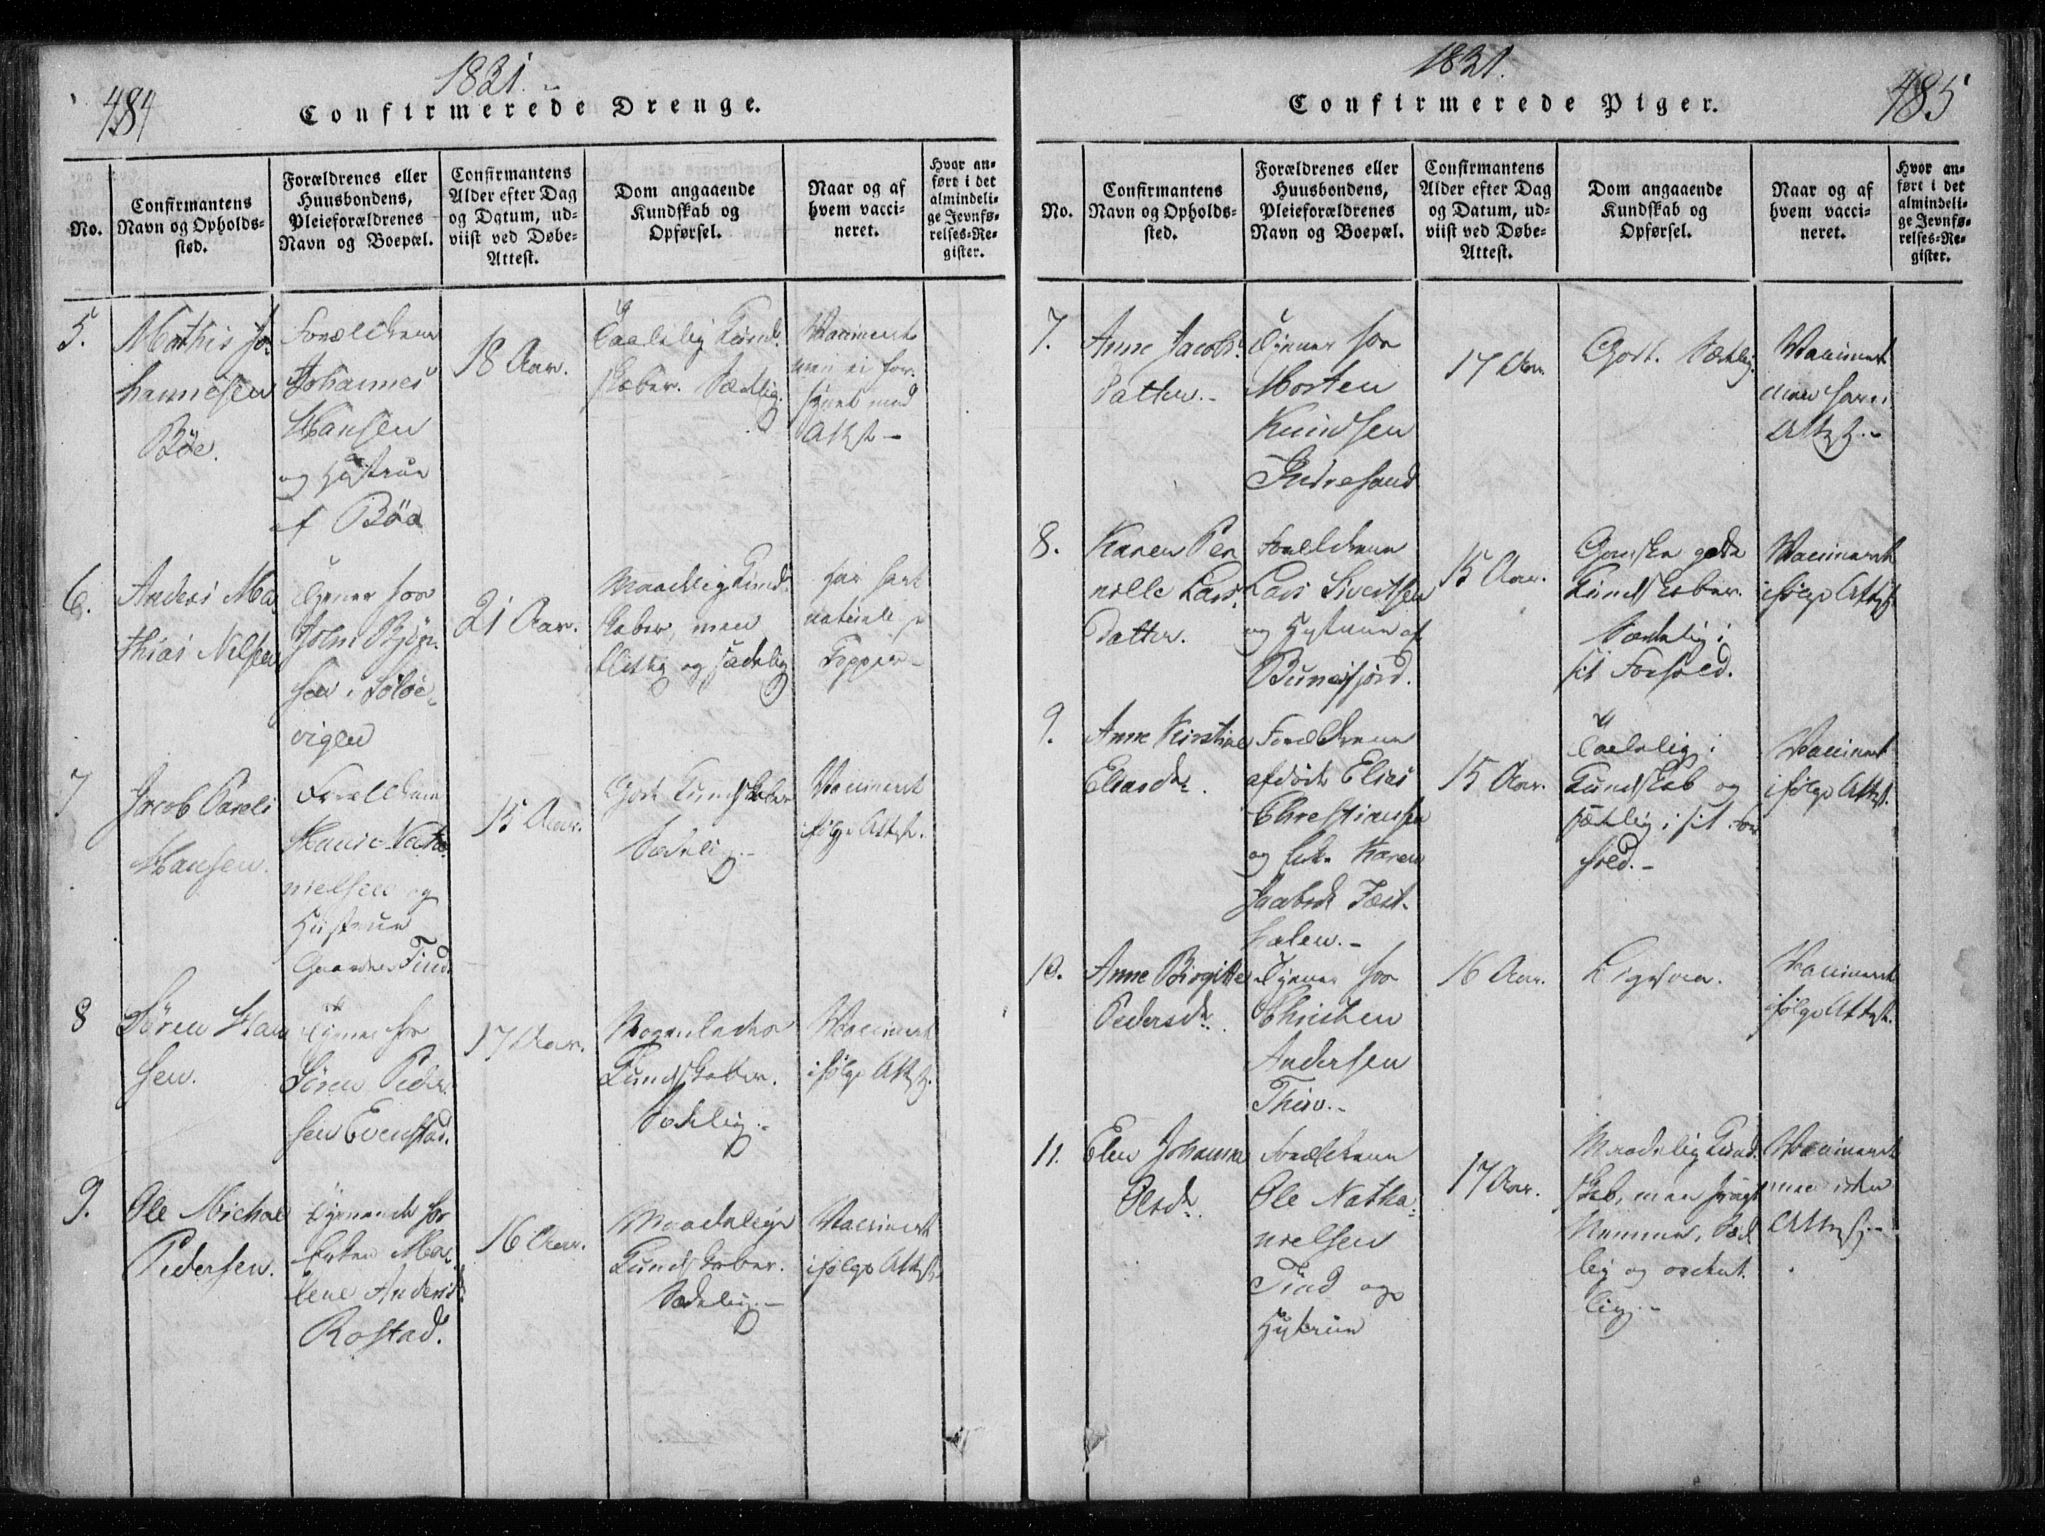 484
1831.
Confirmerede Drenge.
No.
Confirmantens
Navn og Opholds-
sted.
Forældrenes eller
Huusbondens,
Pleieforældrenes
Navn og Boepæl.
Confirmantens
Alder efter Dag
og Datum, ud-
viist ved Døbe-
Attest.
Dom angaaende
Kundskab og
Opførsel.
Naar og af
hvem vacci-
neret.
Hvor an-
ført i det
almindeli-
ge Jevnfø-
relses-Re-
gister.
5.
Mathis Jo-
hannesen
Bøe.
Forældrene
Johannes
Hansen
og Hustrue
af Bøe
18 Aar.
Taalelig Kund-
skaber. Sædelig.
Vaccineret
men ei for-
synet med
Attest
6.
Anders Ma
thias Nelsen
Tjener hos
John Bjør-
sen i Soløe-
vigen
21 Aar.
Maadelig Kund-
skaber, men
flittig og sædelig
har havt
naturlige
Kopper
7
Jacob Pareli
Hansen.
Forældrene
Hans Natha-
nielsen og
Hustrue
Gaarden Tind
15 Aar.
Gode Kundskaber
Sædelig.
Vaccineret
ifølge Attest.
8
Søren Han
sen.
Tjener hos
Søren Peder-
sen Evenstad.
17 Aar.
Kundskaber.
Sædelig.
Vaccineret
ifølge Attest.
9.
Ole Michael
Pedersen.
Tjenende hos
Enken Mar-
lene Andersd.
Rostad.
16 Aar.
Maadelige
Kundskaber.
Sædelig.
Vaccineret
ifølge Attest.
1831.
Confirmerede Piger.
485
No.
Confirmantens
Navn og Opholds-
sted.
Forældrenes eller
Huusbondens,
Pleieforældrenes
Navn og Boepæl.
Confirmantens
Alder efter Dag
og Datum, ud-
viist ved Døbe-
Attest.
Dom angaaende
Kundskab og
Opførsel.
Naar og af
hvem vacci-
neret.
Hvor an-
ført i det
almindeli-
ge Jevnfø-
relses-Re-
gister.
7.
Anne Jacobs-
Datter.
Tjener hos
Morten
Knudsen
Indresand
17 Aar.
Godt. Sædelig.
Vaccineret
men
Attest.
8.
Karen Per
nille Lars-
Datter.
Forældrene
Lars Sivertsen
og Hustrue af
Bunesfjord.
15 Aar.
Ganske gode
Kundskaber.
Sædelig i
sit Forhold.
Vaccineret
ifølge Attest.
9.
Anne Kirstine
Eliasdr.
Forældrene
afdøde Elias
Christiansen
og Enke Karen
Jacobsdr.
15 Aar.
Taalelig i
Kundskab og
sædelig i sit For
hold.
Vaccineret
ifølge Attest.
10.
Anne Birgitte
Pedersdr.
Tjener hos
Christen
Andersen
16 Aar.
Ligesaa.
Vaccineret
ifølge Attest.
11.
Elen Johanna
Olsdr.
Forældrene
Ole Natha-
nielsen
Tind og
Hustrue
17 Aar.
Maadelig Kund-
skab, men svagt
Nemme, Sæde
lig og ordent-
lig.
Vaccineret
men uden
Attest.